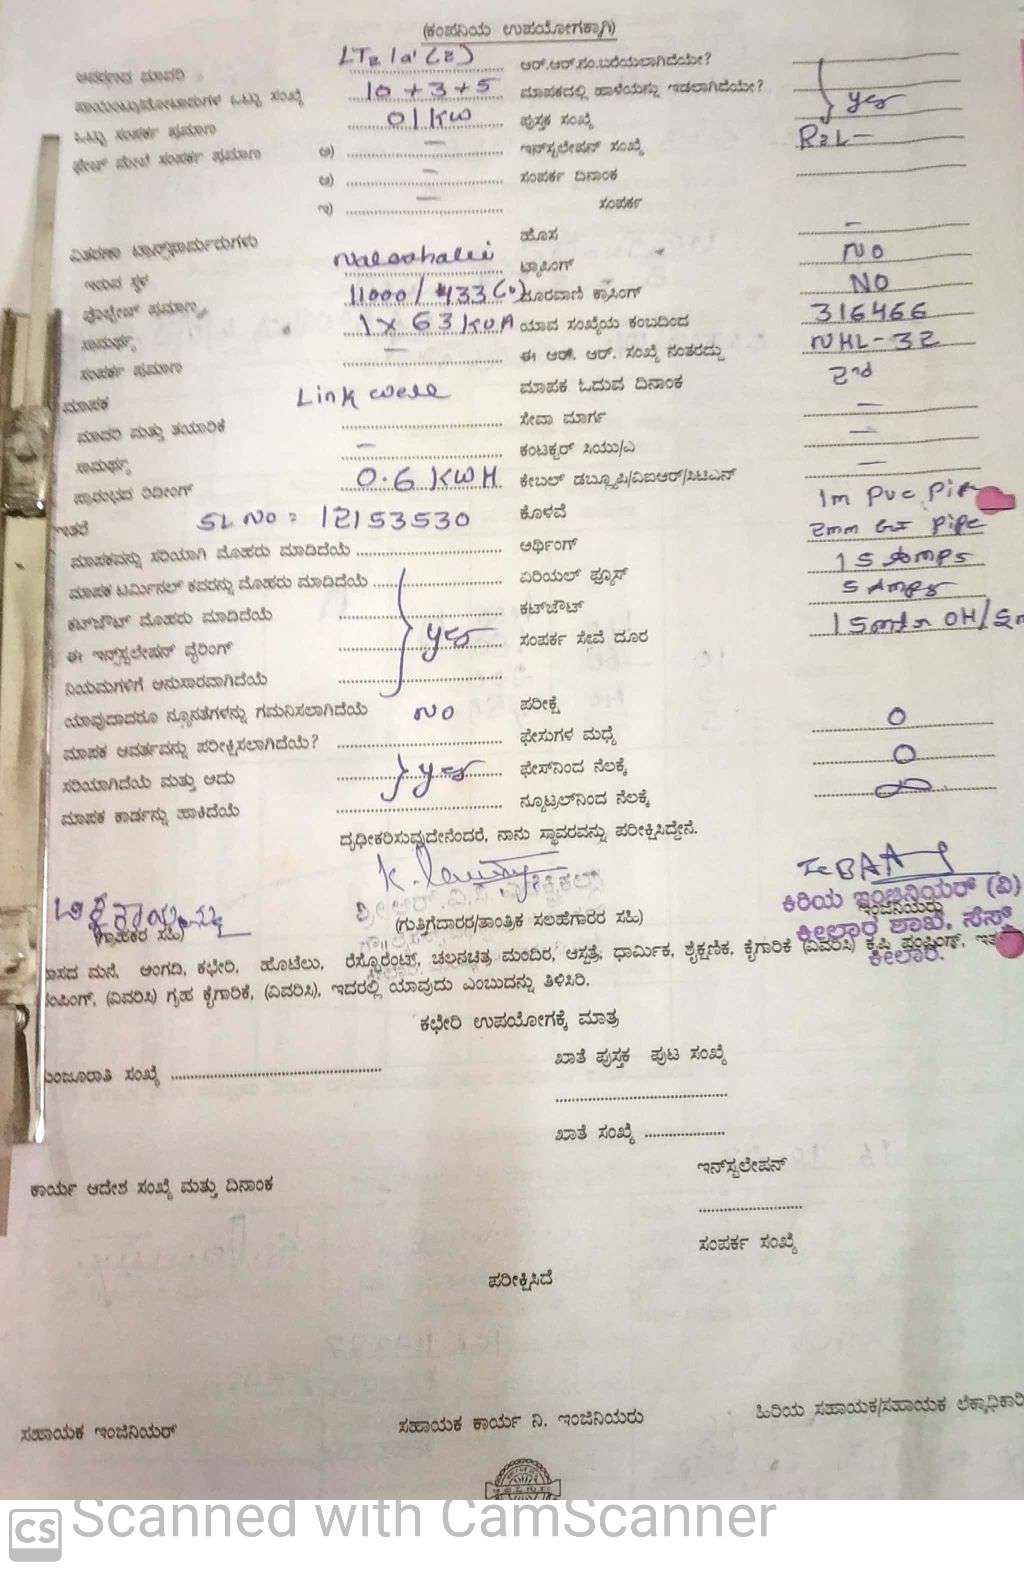 (ಕಂಪನಿಯ ಉಪಯೋಗಕ್ಕಾಗಿ)
ಮಾದರಿ LT2 1a' (2) ಆರ್.ಆರ್.ನಂ.ಬರೆಯಲಾಗಿದೆಯೇ?
ಒಟ್ಟು ಸಂಖ್ಯೆ 10 + 3 + 5 ಮಾಪಕದಲ್ಲಿ ಹಾಳೆಯನ್ನು ಇಡಲಾಗಿದೆಯೇ? yes
ಒಟ್ಟು ಸಂಪರ್ಕ ಪ್ರಮಾಣ 01 KW ಪುಸ್ತಕ ಸಂಖ್ಯೆ
ಫೇಜ್ ಮೇಲೆ ಸಂಪರ್ಕ ಪ್ರಮಾಣ ಅ) — ಇನ್‌ಸ್ಟಲೇಷನ್ ಸಂಖ್ಯೆ
ಆ) — ಸಂಪರ್ಕ ದಿನಾಂಕ
ಇ) — ಸಂಪರ್ಕ
ವಿತರಣಾ ಟ್ರಾನ್ಸ್‌ಫಾರ್ಮರುಗಳು ಹೊಸ —
ಇರುವ ಸ್ಥಳ ಟ್ಯಾಪಿಂಗ್ NO
ವೋಲ್ಟೇಜ್ ಪ್ರಮಾಣ 11000/433 ದೂರವಾಣಿ ಕ್ರಾಸಿಂಗ್ NO
ಸಾಮರ್ಥ್ಯ 1 x 63 KVA ಯಾವ ಸಂಖ್ಯೆಯ ಕಂಬದಿಂದ 316466
ಸಂಪರ್ಕ ಪ್ರಮಾಣ — ಈ ಆರ್. ಆರ್. ಸಂಖ್ಯೆ ನಂತರದ್ದು NHL-32
ಮಾಪಕ Link well ಮಾಪಕ ಓದುವ ದಿನಾಂಕ 2nd
ಮಾದರಿ ಮತ್ತು ತಯಾರಿಕೆ ಸೇವಾ ಮಾರ್ಗ —
ಸಾಮರ್ಥ್ಯ — ಕಂಟಕ್ಟರ್ ಸಿಯು/ಎ —
ಪ್ರಾರಂಭದ ರಿಡಿಂಗ್ 0.6 KWH ಕೇಬಲ್ ಡಬ್ಲ್ಯೂಪಿ/ವಿಐಆರ್/ಸಿಟಿಎನ್ —
ಇತರೆ SL NO = 12153530 ಕೊಳವೆ 1m PVC Pipe
ಮಾಪಕವನ್ನು ಸರಿಯಾಗಿ ಮೊಹರು ಮಾಡಿದೆಯೆ ಅರ್ಥಿಂಗ್ 2mm GI Pipe
ಮಾಪಕ ಟರ್ಮಿನಲ್ ಕವರನ್ನು ಮೊಹರು ಮಾಡಿದೆಯೆ ಏರಿಯಲ್ ಫ್ಯೂಸ್ 15 Amps
ಕಟ್‌ಔಟ್ ಮೊಹರು ಮಾಡಿದೆಯೆ ಕಟ್‌ಔಟ್ 5 Amps
ಈ ಇನ್ಸ್ಟಲೇಷನ್ ವೈರಿಂಗ್ yes ಸಂಪರ್ಕ ಸೇವೆ ದೂರ
ನಿಯಮಗಳಿಗೆ ಅನುಸಾರವಾಗಿದೆಯೆ
ಯಾವುದಾದರೂ ನ್ಯೂನತೆಗಳನ್ನು ಗಮನಿಸಲಾಗಿದೆಯೆ NO ಪರೀಕ್ಷೆ
ಮಾಪಕ ಆವರ್ತವನ್ನು ಪರೀಕ್ಷಿಸಲಾಗಿದೆಯೆ? ಫೇಸುಗಳ ಮಧ್ಯೆ 0
ಸರಿಯಾಗಿದೆಯೆ ಮತ್ತು ಅದು yes ಫೇಸ್‌ನಿಂದ ನೆಲಕ್ಕೆ 0
ಮಾಪಕ ಕಾರ್ಡನ್ನು ಹಾಕಿದೆಯೆ ನ್ಯೂಟ್ರಲ್‌ನಿಂದ ನೆಲಕ್ಕೆ
ದೃಢೀಕರಿಸುವುದೇನೆಂದರೆ, ನಾನು ಸ್ಥಾವರವನ್ನು ಪರೀಕ್ಷಿಸಿದ್ದೇನೆ.
ಕಿರಿಯ ಇಂಜಿನಿಯರ್ (ವಿ)
(ಗ್ರಾಹಕರ ಸಹಿ) (ಗುತ್ತಿಗೆದಾರರ/ತಾಂತ್ರಿಕ ಸಲಹೆಗಾರರ ಸಹಿ) ಇಂಜಿನಿಯರು
ಕೀಲಾರ ಶಾಖೆ, ಸೆಸ್ಕ್
ಕೀಲಾರ.
ವಾಸದ ಮನೆ, ಅಂಗದಿ, ಕಛೇರಿ, ಹೊಟೆಲು, ರೆಸ್ಟೊರೆಂಟ್, ಚಲನಚಿತ್ರ ಮಂದಿರ, ಆಸ್ಪತ್ರೆ, ಧಾರ್ಮಿಕ, ಶೈಕ್ಷಣಿಕ, ಕೈಗಾರಿಕೆ (ವಿವರಿಸಿ) ಕೃಷಿ ಪಂಪಿಂಗ್, ಇತ
ಪಂಪಿಂಗ್, (ವಿವರಿಸಿ) ಗೃಹ ಕೈಗಾರಿಕೆ, (ವಿವರಿಸಿ), ಇದರಲ್ಲಿ ಯಾವುದು ಎಂಬುದನ್ನು ತಿಳಿಸಿರಿ.
ಕಛೇರಿ ಉಪಯೋಗಕ್ಕೆ ಮಾತ್ರ
ಮಂಜೂರಾತಿ ಸಂಖ್ಯೆ ಖಾತೆ ಪುಸ್ತಕ ಪುಟ ಸಂಖ್ಯೆ
ಖಾತೆ ಸಂಖ್ಯೆ
ಇನ್‌ಸ್ಟಲೇಷನ್
ಕಾರ್ಯ ಆದೇಶ ಸಂಖ್ಯೆ ಮತ್ತು ದಿನಾಂಕ
ಸಂಪರ್ಕ ಸಂಖ್ಯೆ
ಪರೀಕ್ಷಿಸಿದೆ
ಸಹಾಯಕ ಇಂಜಿನಿಯರ್ ಸಹಾಯಕ ಕಾರ್ಯ ನಿ. ಇಂಜಿನಿಯರು ಹಿರಿಯ ಸಹಾಯಕ/ಸಹಾಯಕ ಲೆಕ್ಕಾಧಿಕಾರಿ
CS Scanned with CamScanner